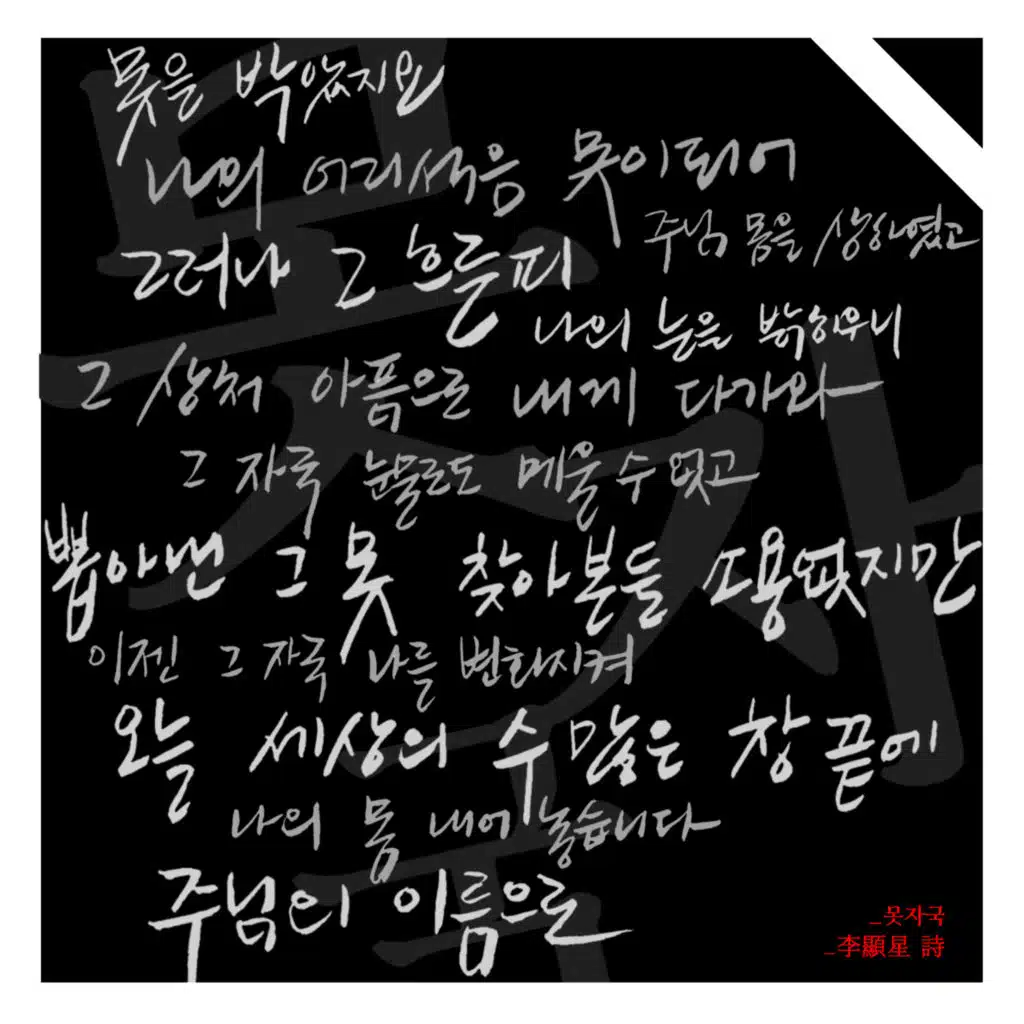 못을 박았지요
나의 어리석음 못이되어
주님 몸을 상하였고
그러나 그 흐른피
나의 눈을 밝히우니
그 상처 아픔으로 내게 다가와
그 자국 눈물로도 메울 수 없고
뽑아낸 그 못 찾아본들 소용없지만
이젠 그 자국 나를 변화시켜
오늘 세상의 수 많은 창 끝에
나의 몸 내어 놓습니다
주님의 이름으로
못자국
_못자국
_李顯星 詩